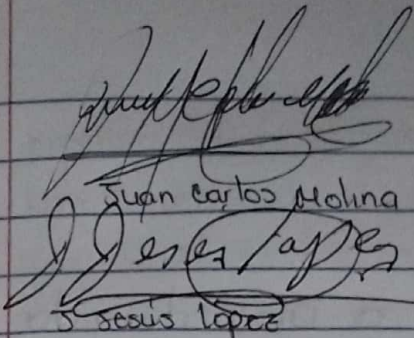 Juan carlos Molina
J Jesus Lopez
J Jesús López